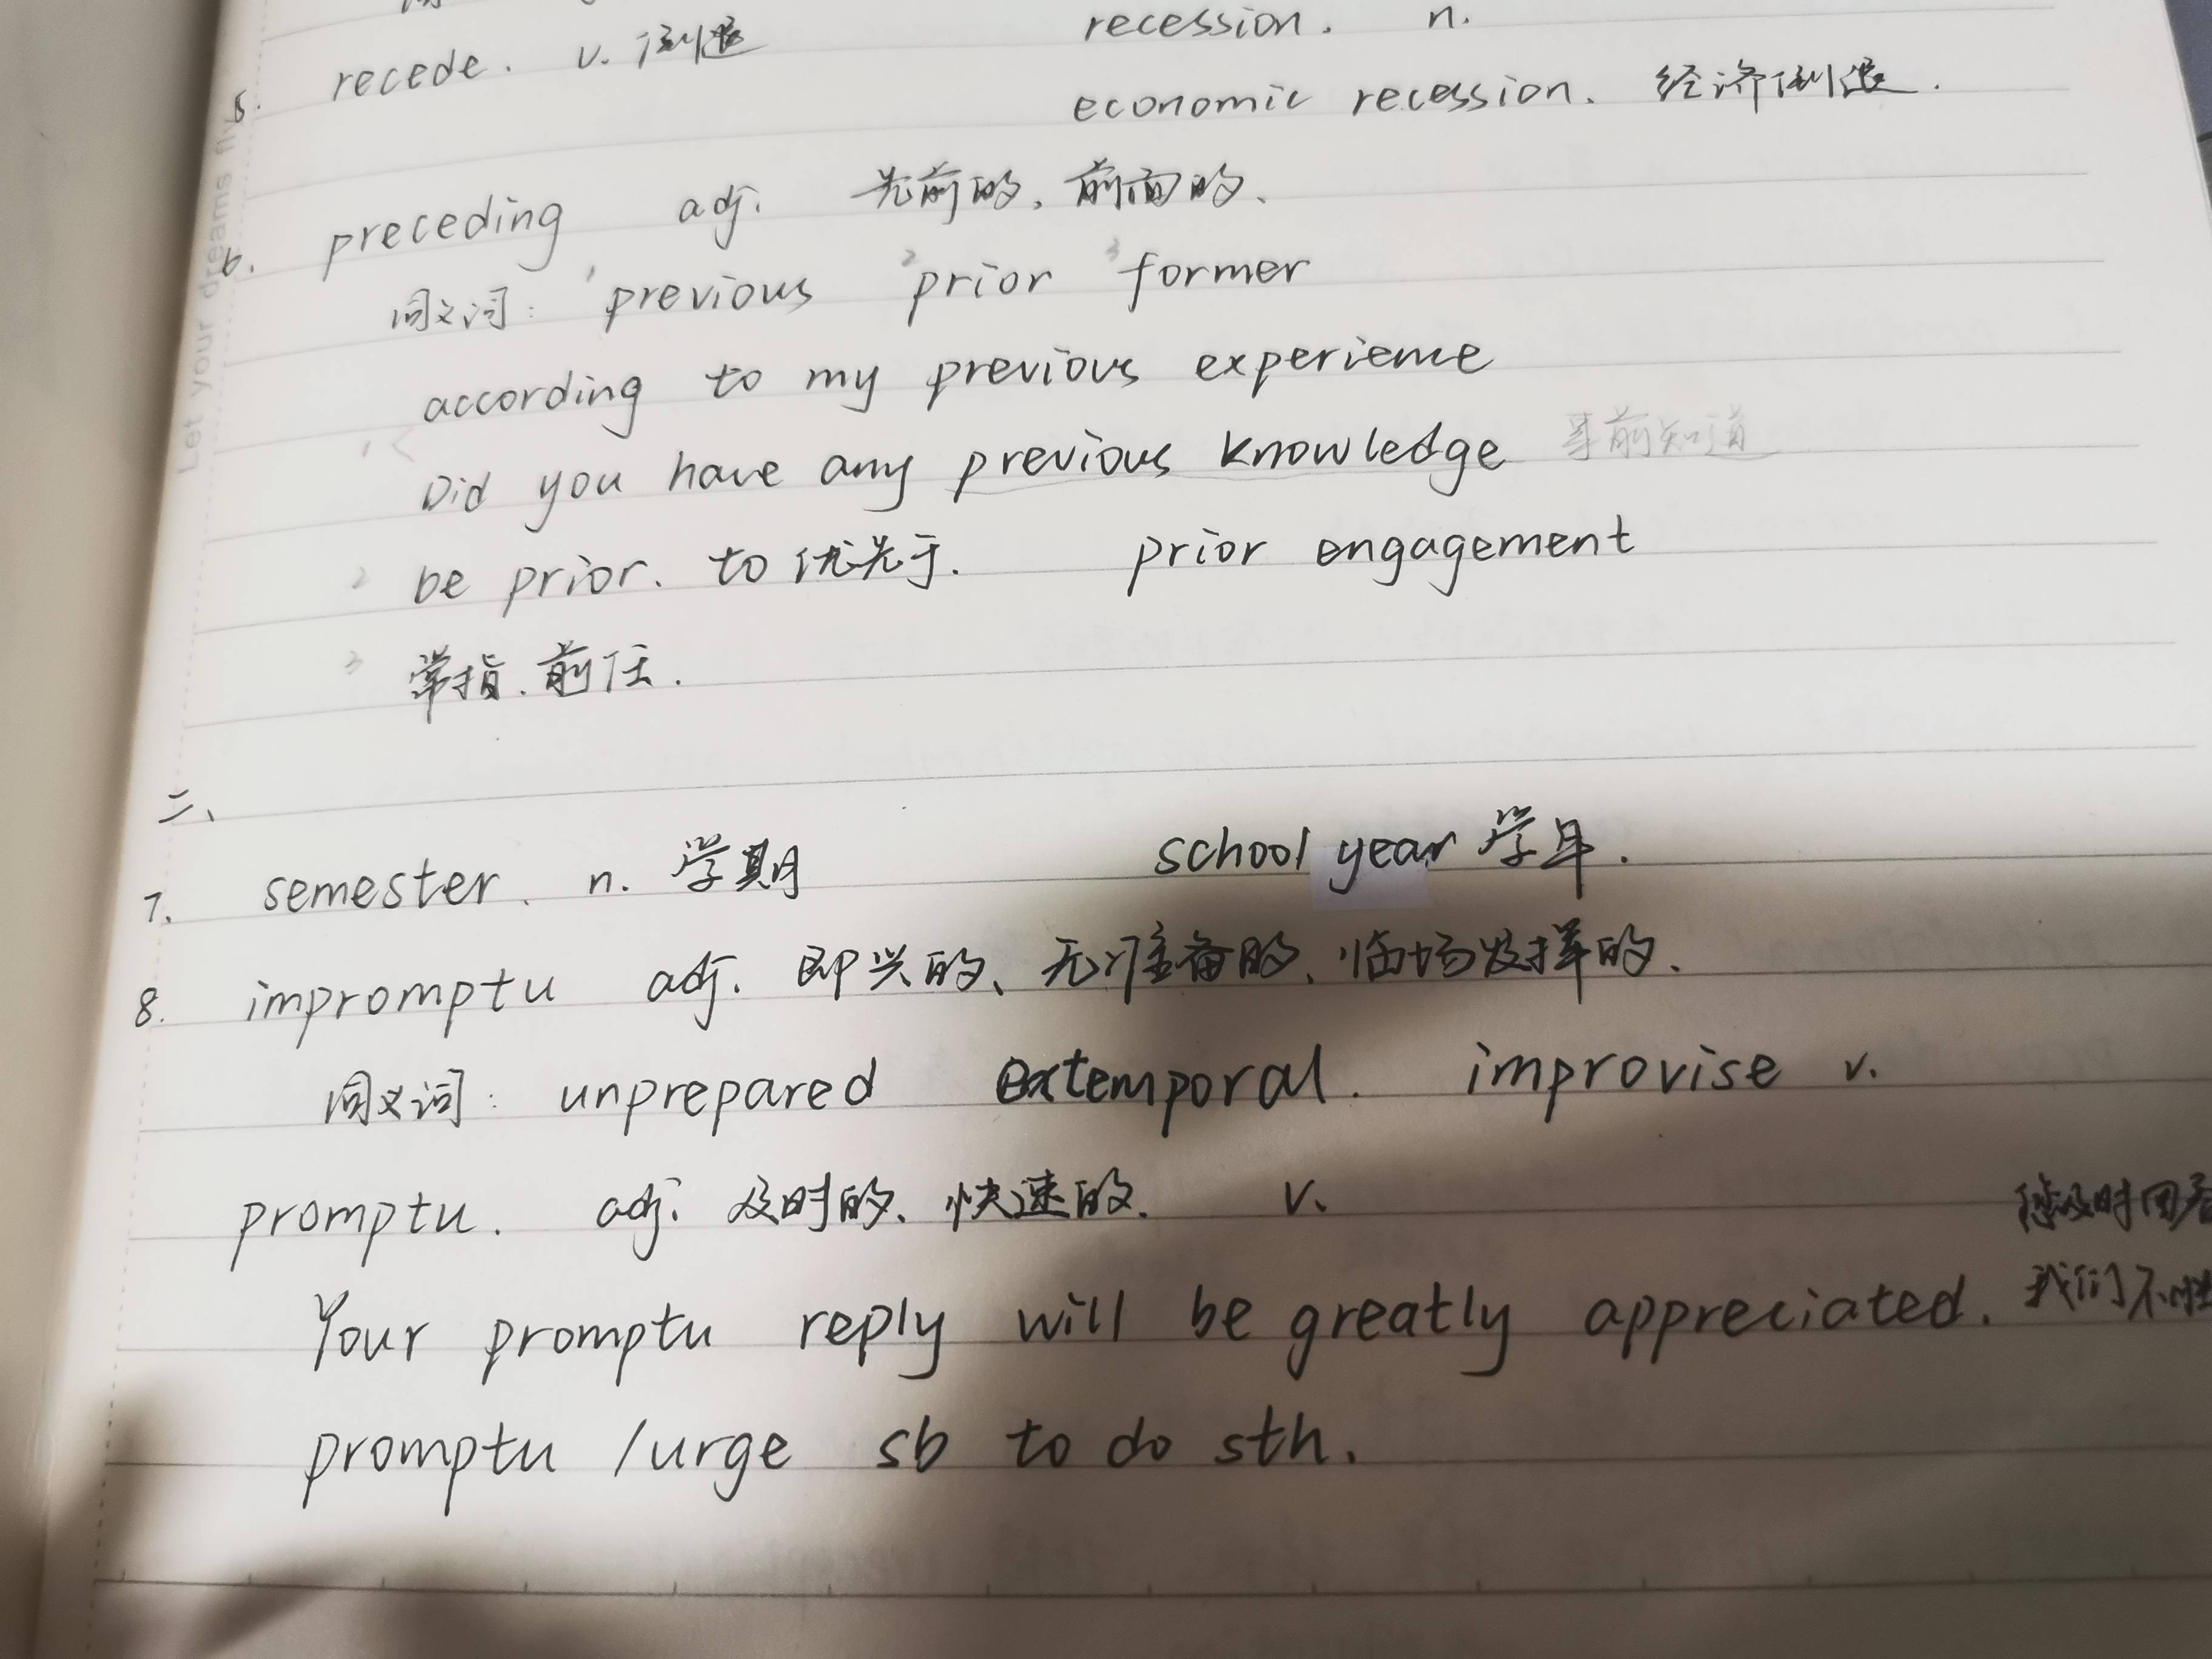 recession. n.
5. recede. v. 倒退
economic recession. 经济倒退.
6. preceding adj. 先前的、前面的、
同义词: 1 previous 2 prior 3 former
according to my previous experience
1 < Did you have any previous knowledge 事前知道
2 be prior. to 优先于. prior engagement
3 常指.前任.
二、
7. semester. n. 学期 school year 学年.
8. impromptu adj. 即兴的、无准备的、临场发挥的.
同义词: unprepared extemporal. improvise v.
promptu. adj. 及时的、快速的. v.
Your promptu reply will be greatly appreciated. 您及时回
我们不胜
promptu /urge sb to do sth.
Let your dreams fly